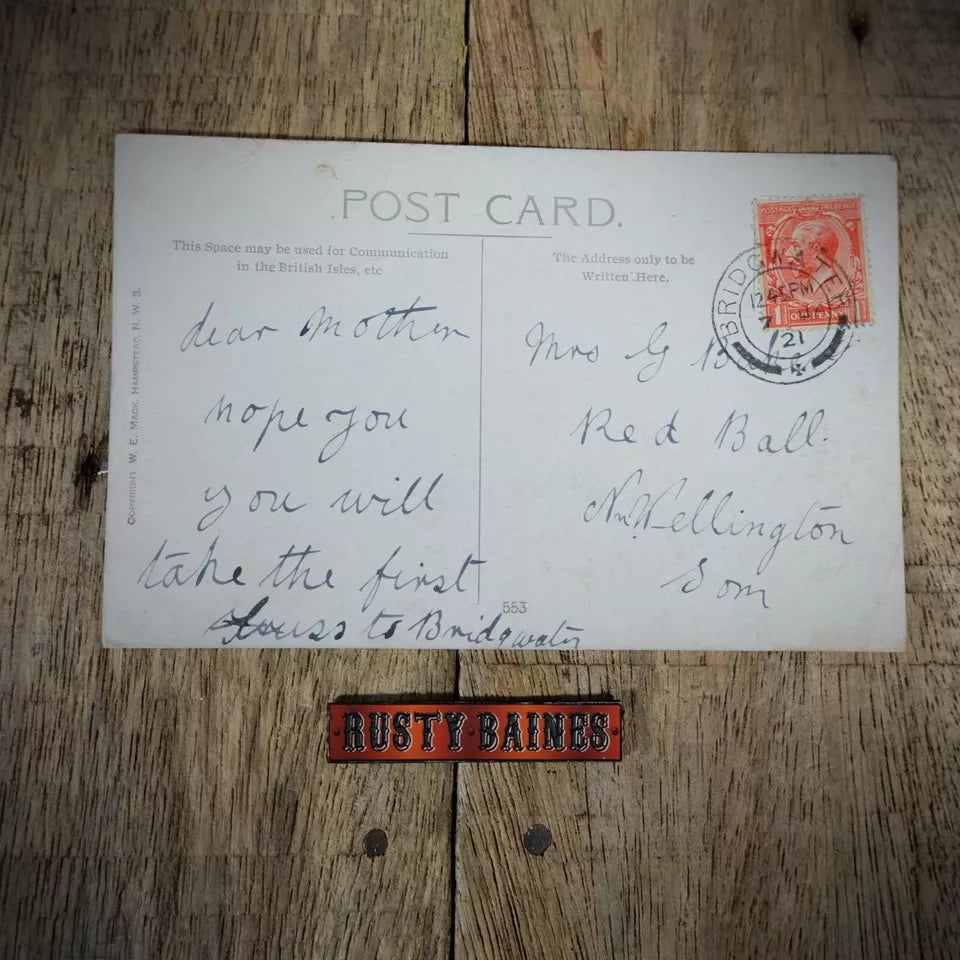 POST CARD.
This Space may be used for Communication
in the British Isles, etc
The Address only to be
Written Here.
COPYRIGHT W. E. MACK, HAMPSTEAD, N. W. 3.
dear Mother
hope you
you will
take the first
to Bridgwater
553
Mrs G
Red Ball.
Nr Wellington
Som
POSTAGE REVENUE
1 ONE PENNY 1
BRIDGWATER
12 45 PM
7
21
RUSTY BAINES